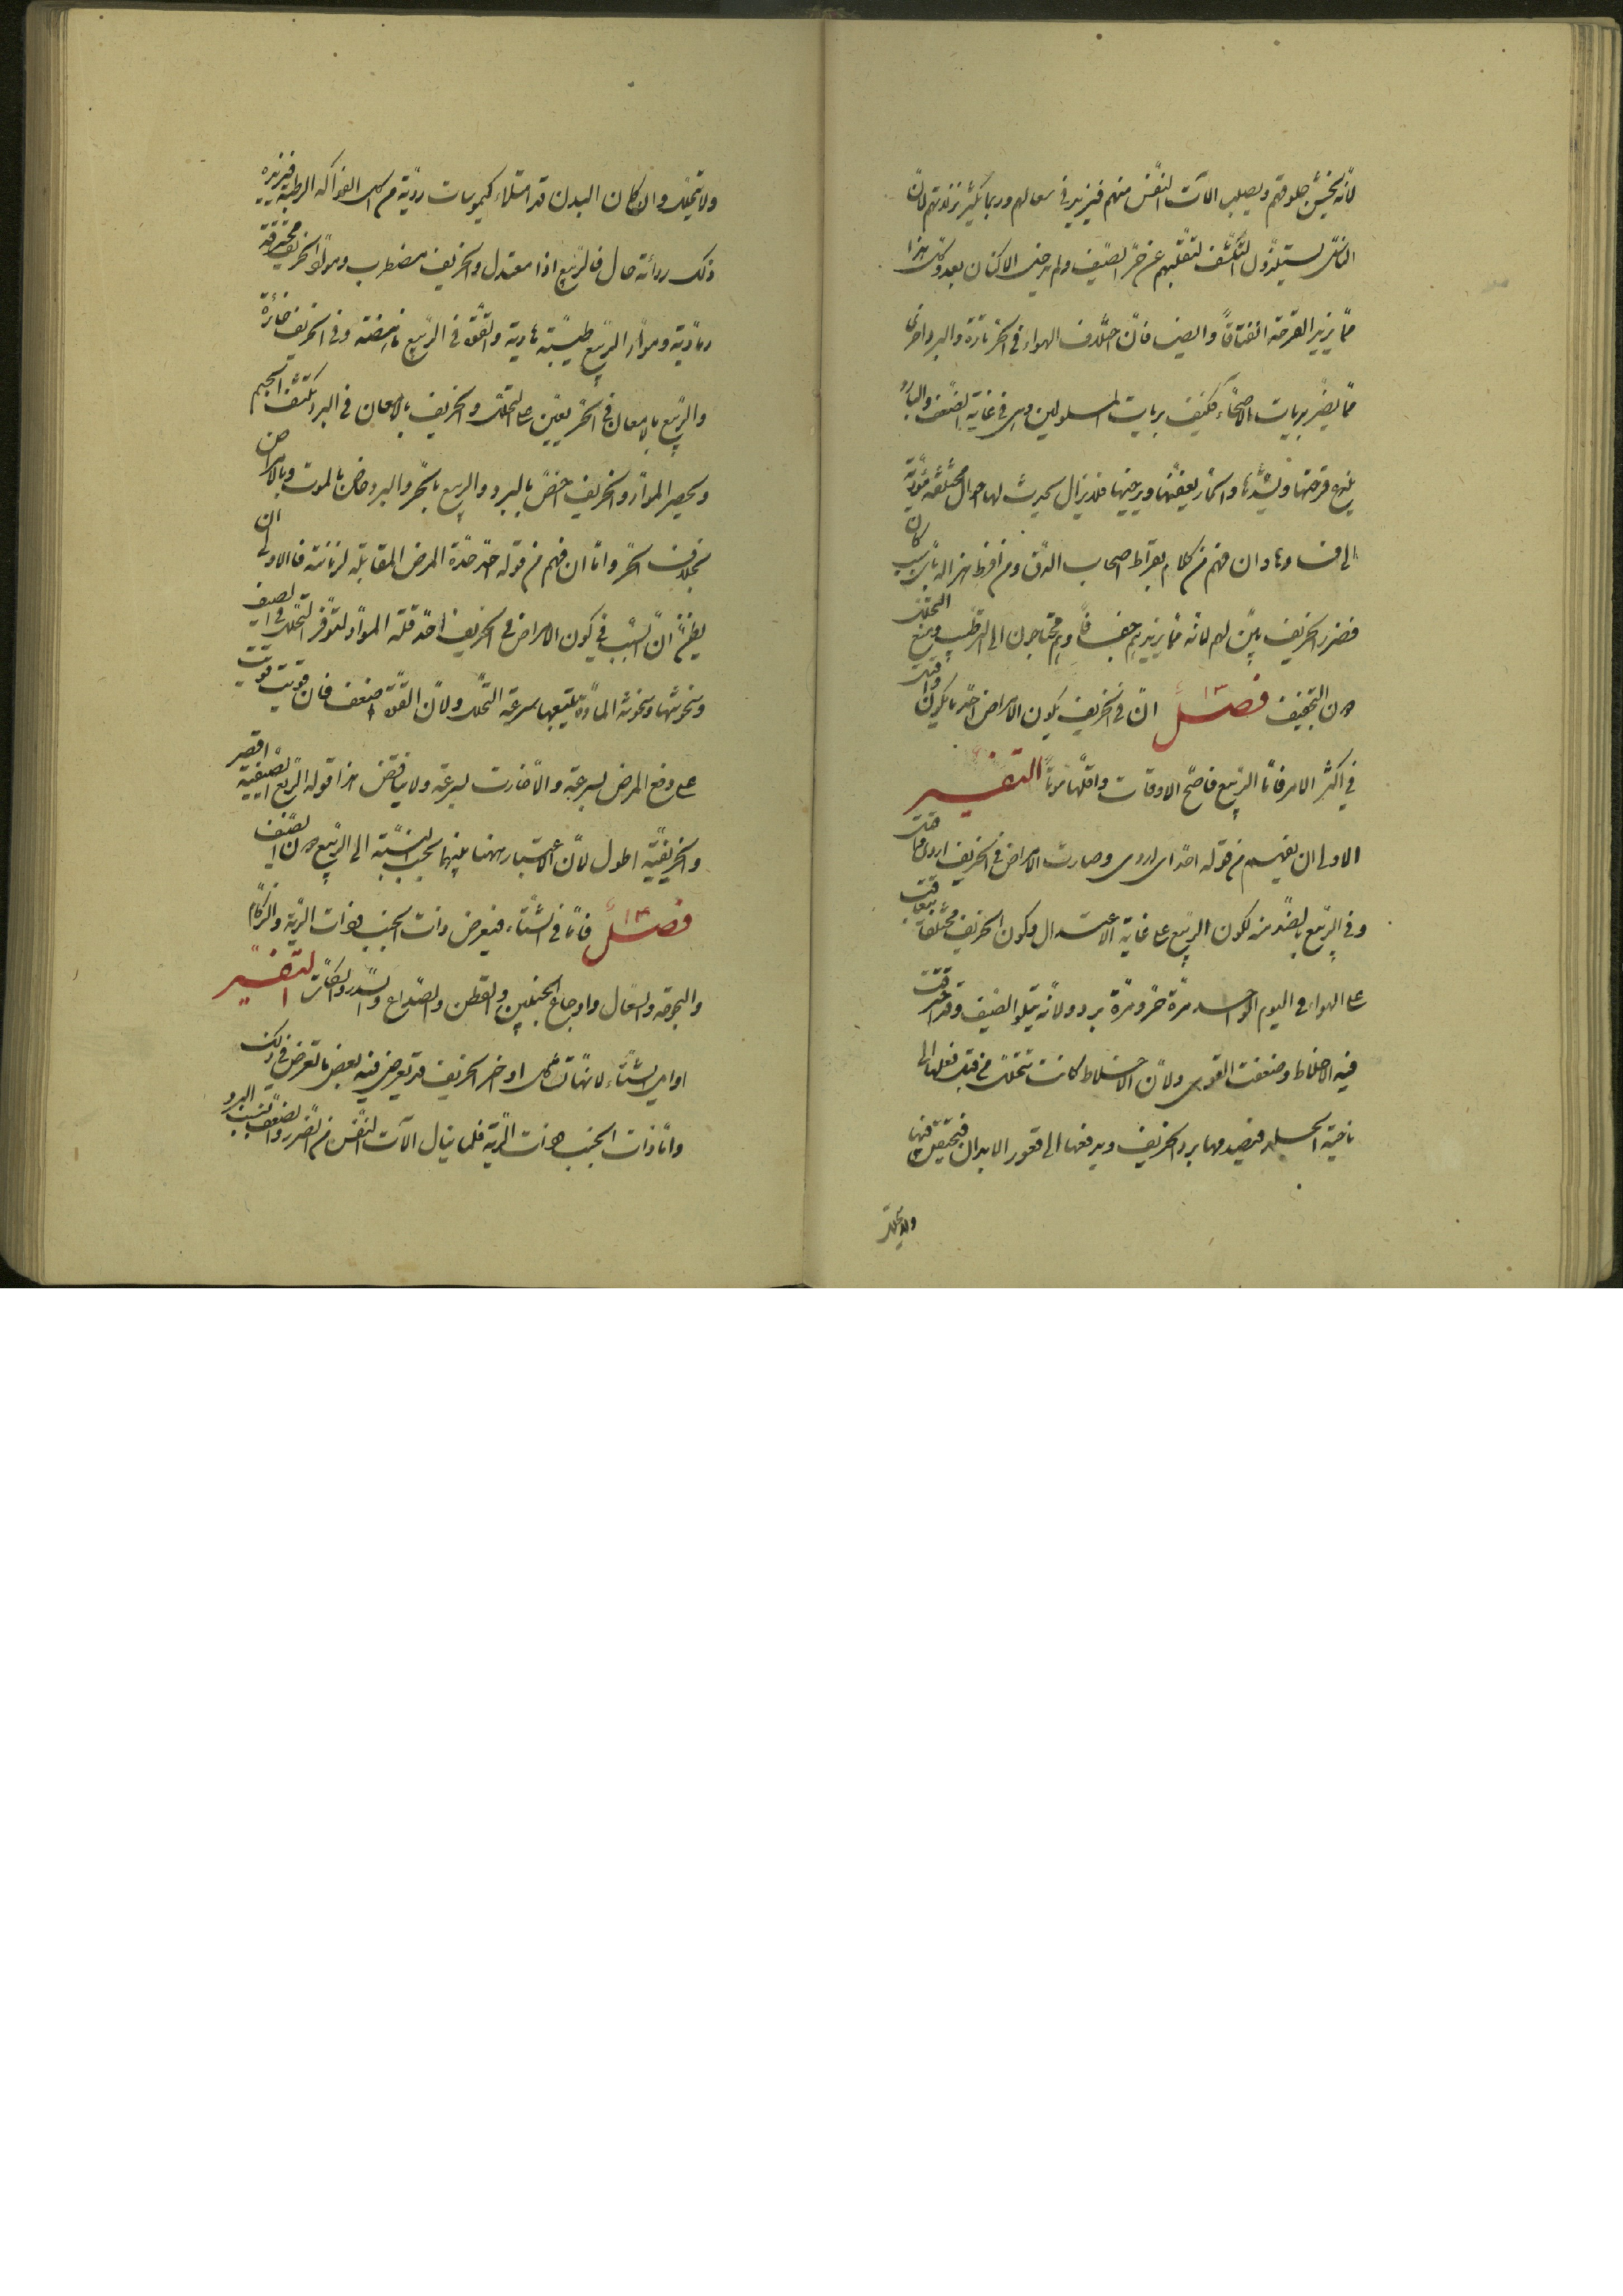 لانه يخشن حلوقهم ويصلب الات النفس منهم فيزيد في سعالهم وربما يكثر نزلاتهم لان
الناس يستلذون التكشف لتقلبهم عن حر الصيف ولم يدخل الاكنان بعد وكل هذا
مما يزيد القرحة انفتاقا وايضا فان اختلاف الهواء في الحر تارة والبرد اخرى
مما يضر بريات الاصحاء فكيف بريات المسلولين وهي في غاية الضعف والبارد
يلذع قرحتها ويشدها والحار يعفنها ويرخيها فلا يزال يحدث لها احوال مختلفة مؤدية
الى فسادها وان فهم من كلام بقراط اصحاب الدق ومن افرط هزاله باي سبب كان
فضرر الخريف بين لهم لانه مما يزيدهم جفافا وهم محتاجون الى الترطيب ومنع التحلل
من التجفيف فصل ان في الخريف يكون الامراض احد ما يكون واقتل
في اكثر الامر فاما الربيع فاصح الاوقات واقلها موتا التفسير
الاولى ان يفهم من قوله احد اي اردى وصارت الامراض في الخريف اردى واقتل
وفي الربيع بالضد منه لكون الربيع على غاية الاعتدال وكون الخريف مختلفا يتعاقب
على الهواء في اليوم الواحد مرة حر ومرة برد ولانه يتلو الصيف وقد احترقت
فيه الاخلاط وضعفت القوى ولان الاخلاط كانت تتحلل من قبل فعلها الى
ناحية الجلد فيصدمها برد الخريف ويدفعها الى قعور الابدان فتحتقن فيها
ولا يتحلل
ولا يتحلل وان كان البدن قد امتلاء كيموسات ردية من اكل الفواكه الرطبة فيزيده
ذلك رداءة حال فالربيع اذا معتدل والخريف مضطرب ومواد الخريف محترقة
رمادية ومواد الربيع طيبة هادية والقوة في الربيع ناهضة وفي الخريف خائرة
والربيع بالامعان في الحر يعين على التحلل والخريف بالامعان في البرد يكثف الجسم
ويحصر المواد والخريف اخص بالبرد والربيع بالحر والبرد خاص بالموت وبالامراض
بخلاف الحر واما ان فهم من قوله احد حدة المرض المقابلة لازمانه فالاولى ان
يظن ان السبب في كون الامراض في الخريف احد قلة المواد لتوفر التحلل في الصيف
وسخونتها وسخونة المادة يتبعها سرعة التحلل ولان القوة اضعف فان قويت قويت
على دفع المرض بسرعة والا خارت بسرعة ولا يناقض هذا قوله الربع الصيفية اقصر
والخريفية اطول لان الاعتبار ههنا بينهما بحسب النسبة الى الربيع من الصيف
فصل فاما في الشتاء فيعرض ذات الجنب وذات الرية والزكام
والبحوحة والسعال واوجاع الجنبين والقطن والصداع والسدر والسكات التفسير
اوايل الشتاء لانها تشاكل اواخر الخريف قد يعرض فيه بعض ما يعرض في ذلك
واما ذات الجنب وذات الرية فلما ينال الات النفس من الضرر والضعف بسبب البرد